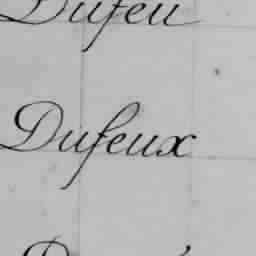 Dufeu
Dufeux